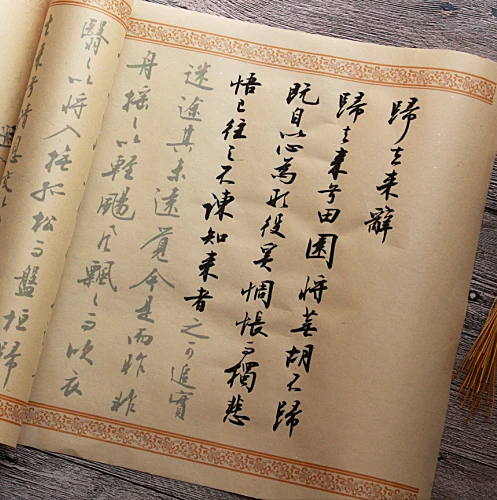 歸去来辭
歸去来兮田園将蕪胡不歸
既自以心為形役奚惆悵而獨悲
悟已往之不諫知来者之可追實
迷途其未遠覺今是而昨非
舟摇〻以輕颺風飄〻而吹衣
翳〻以将入撫孤松而盤桓歸
去来兮請息